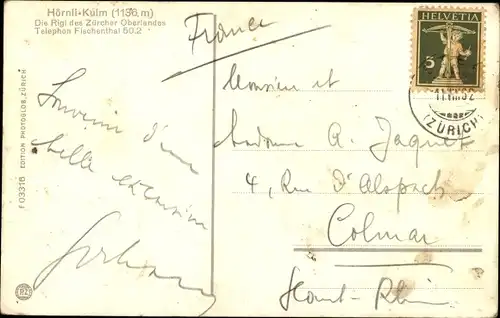 Hörnli-Kulm (1136 m)
Die Rigi des Zürcher Oberlandes
Telephon Fischenthal 50.2
France
HELVETIA
5
(ZÜRICH)
Souvenir d'une
belle excursion
Monsieur et
Madame A. Jaquet
4, Rue d'Alspach
Colmar
Haut-Rhin
F 03316 EDITION PHOTOGLOB, ZÜRICH